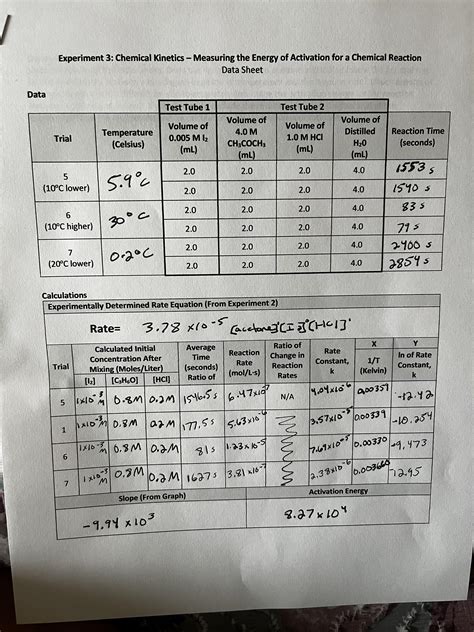 Experiment 3: Chemical Kinetics – Measuring the Energy of Activation for a Chemical Reaction
Data Sheet
Data
Test Tube 1 Test Tube 2
Trial Temperature (Celsius) Volume of 0.005 M I2 (mL) Volume of 4.0 M CH3COCH3 (mL) Volume of 1.0 M HCl (mL) Volume of Distilled H2O (mL) Reaction Time (seconds)
5 (10°C lower) 5.9°C 2.0 2.0 2.0 4.0 1553 s
2.0 2.0 2.0 4.0 1540 s
6 (10°C higher) 30°C 2.0 2.0 2.0 4.0 83 s
2.0 2.0 2.0 4.0 79 s
7 (20°C lower) 0.2°C 2.0 2.0 2.0 4.0 2400 s
2.0 2.0 2.0 4.0 2854 s
Calculations
Experimentally Determined Rate Equation (From Experiment 2)
Rate= 3.78 x10^-5 [acetone]^1[I2]^0[HCl]^1
Trial Calculated Initial Concentration After Mixing (Moles/Liter) Average Time (seconds) Ratio of Reaction Rate (mol/L·s) Ratio of Change in Reaction Rates Rate Constant, k X 1/T (Kelvin) Y ln of Rate Constant, k
[I2] [C3H6O] [HCl]
5 1x10^-3 M 0.8M 0.2M 1546.5 s 6.47x10^-7 N/A 4.04x10^-6 0.00359 -12.42
1 1x10^-3 M 0.8M 0.2M 177.5 s 5.63x10^-6 3.57x10^-5 0.00339 -10.254
6 1x10^-3 M 0.8M 0.2M 81 s 1.23x10^-5 7.69x10^-5 0.00330 -9.473
7 1x10^-3 M 0.8M 0.2M 1627 s 3.81x10^-7 2.38x10^-6 0.003660 -12.95
Slope (From Graph) Activation Energy
-9.94 x10^3 8.27x10^4